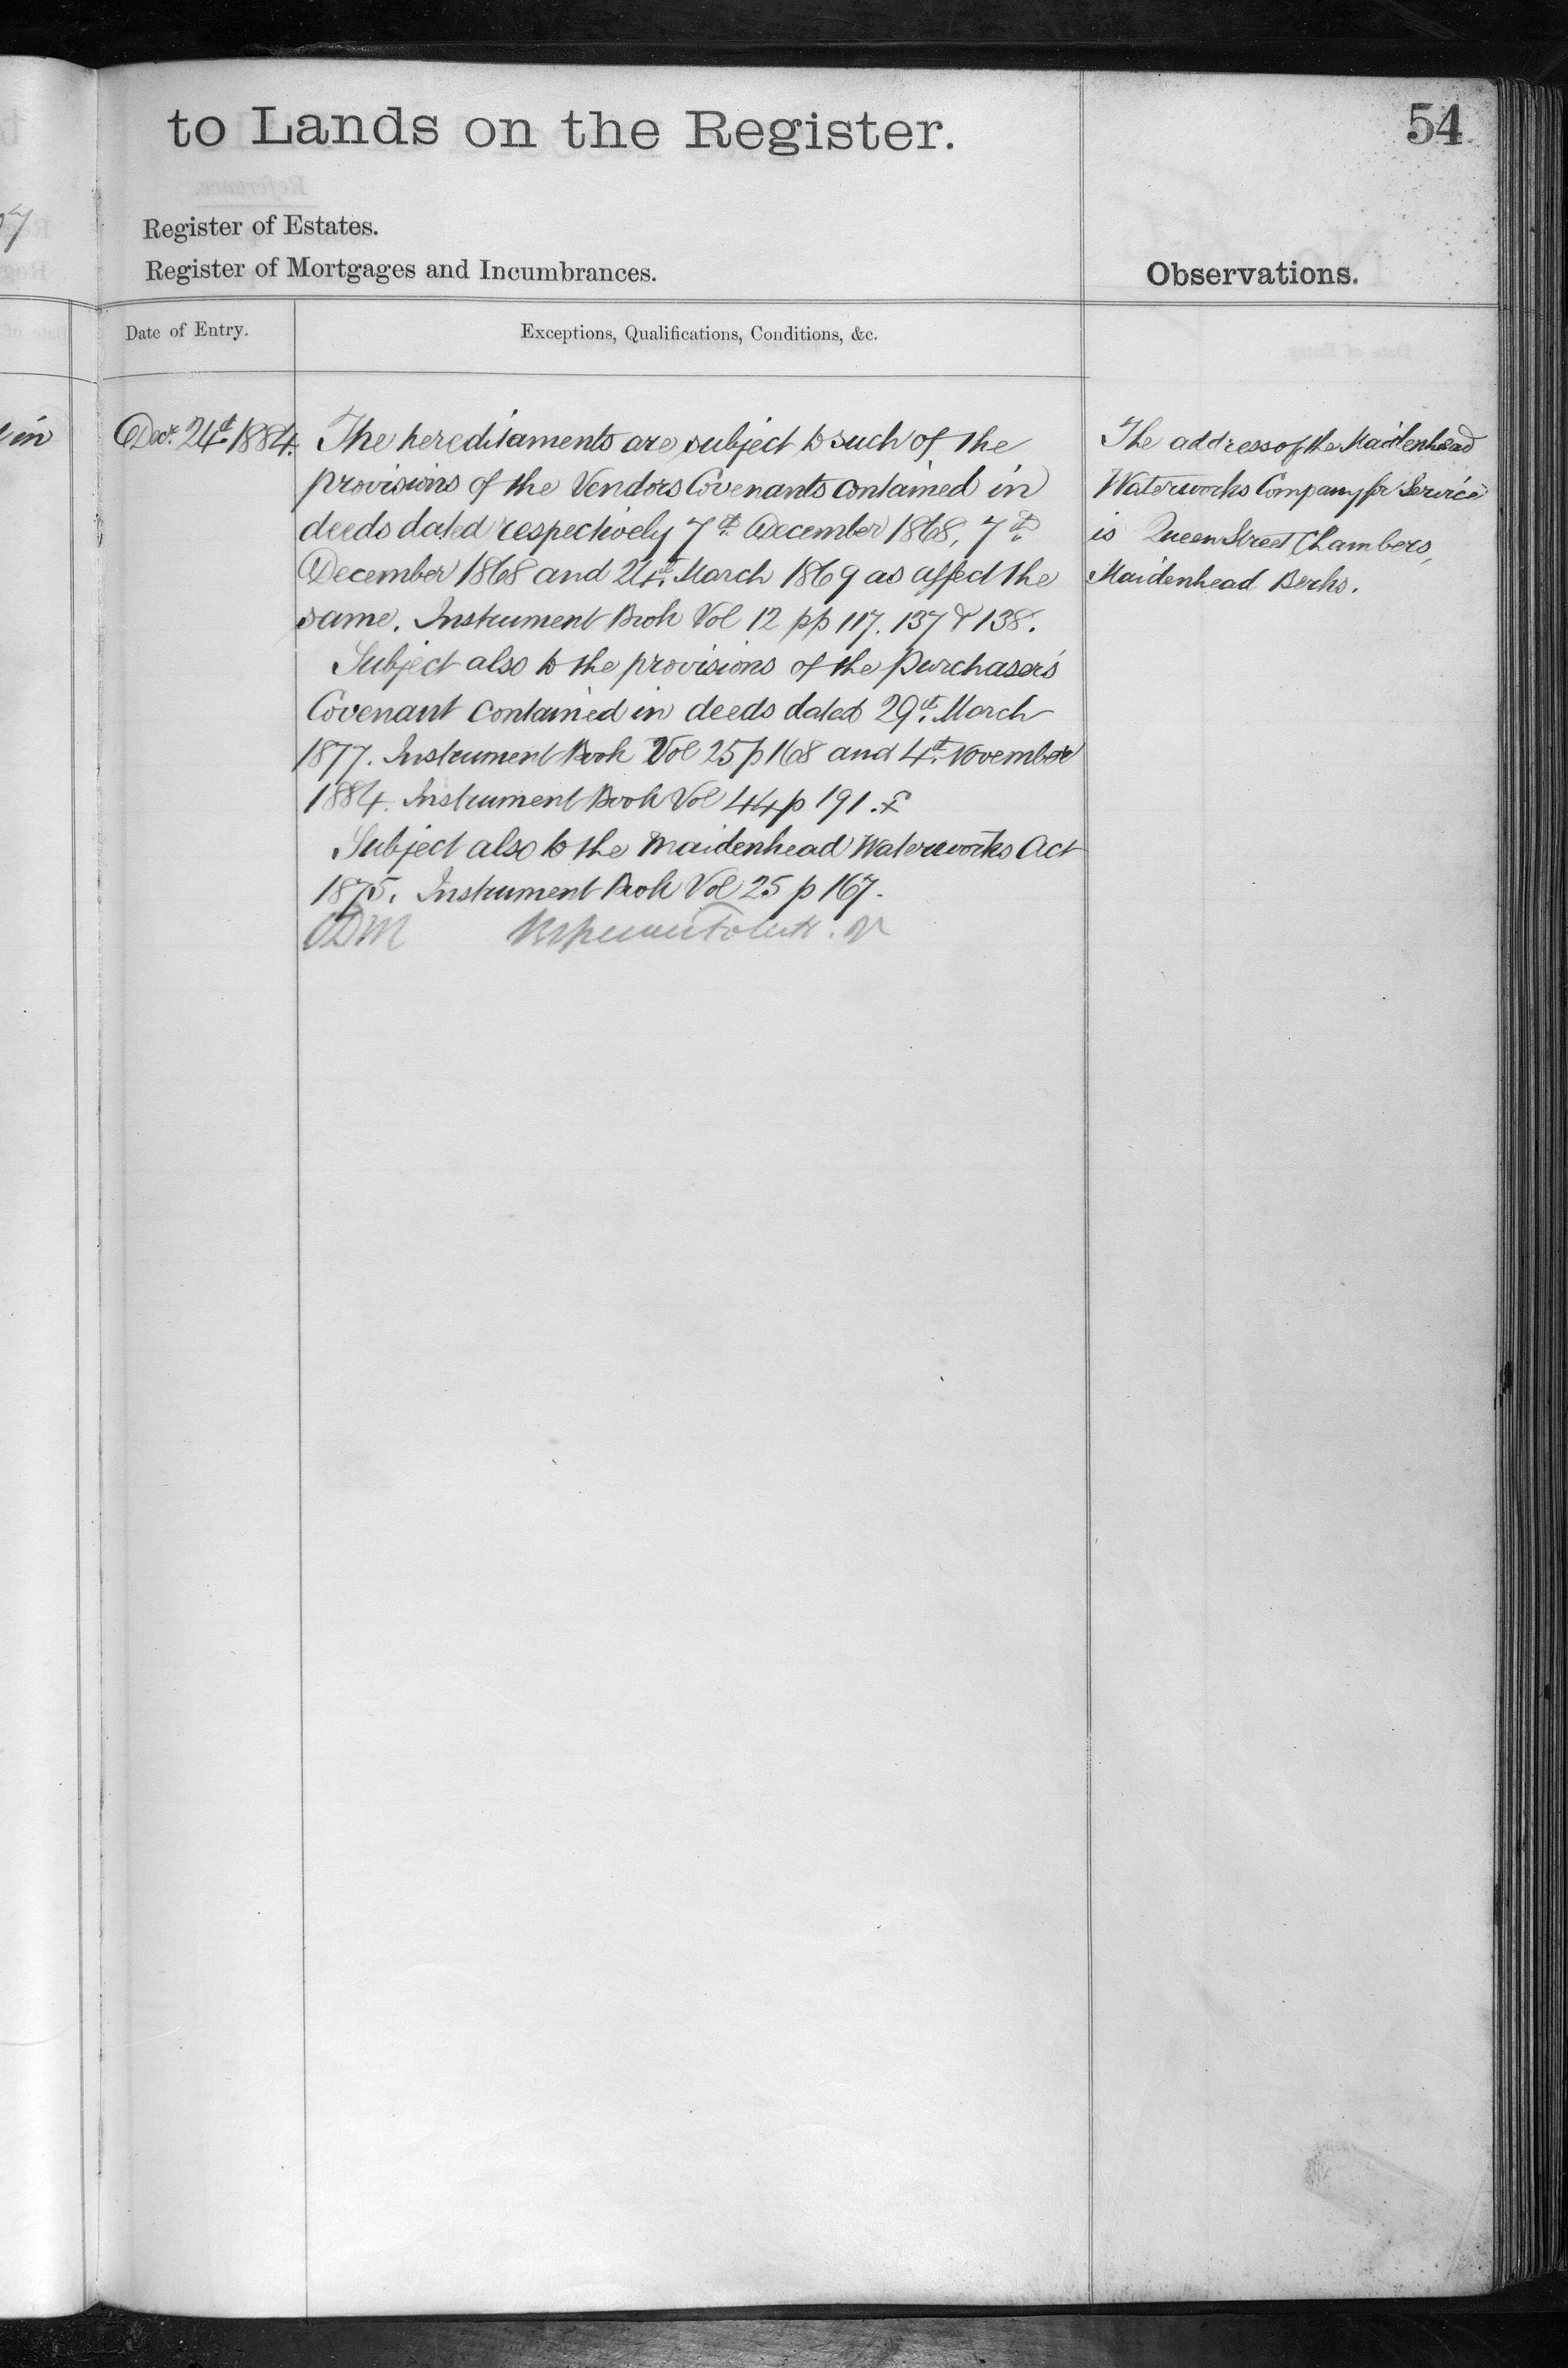 to Lands on the Register.
54
Register of Estates.
Register of Mortgages and Incumbrances.
Observations.
Date of Entry.
Exceptions, Qualifications, Conditions, &c.
in
Decr. 24th 1884.
The hereditaments are subject to such of the
provisions of the Vendors Covenants contained in
deeds dated respectively 7th December 1868, 7th
December 1868 and 24th March 1869 as affect the
same. Instrument Book Vol 12 pp 117. 137 & 138.
Subject also to the provisions of the Purchaser's
Covenant contained in deeds dated 29th March
1877. Instrument Book Vol 25 p 168 and 4th November
1884. Instrument Book Vol 44 p 191.
Subject also to the Maidenhead Waterworks Act
1875. Instrument Book Vol 25 p 167.
The address of the Maidenhead
Waterworks Company for Service
is Queen Street Chambers,
Maidenhead Berks.